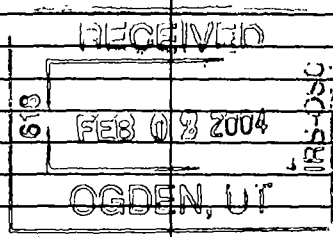 RECEIVED
618
FEB 03 2004
IRS-OSC
OGDEN, UT